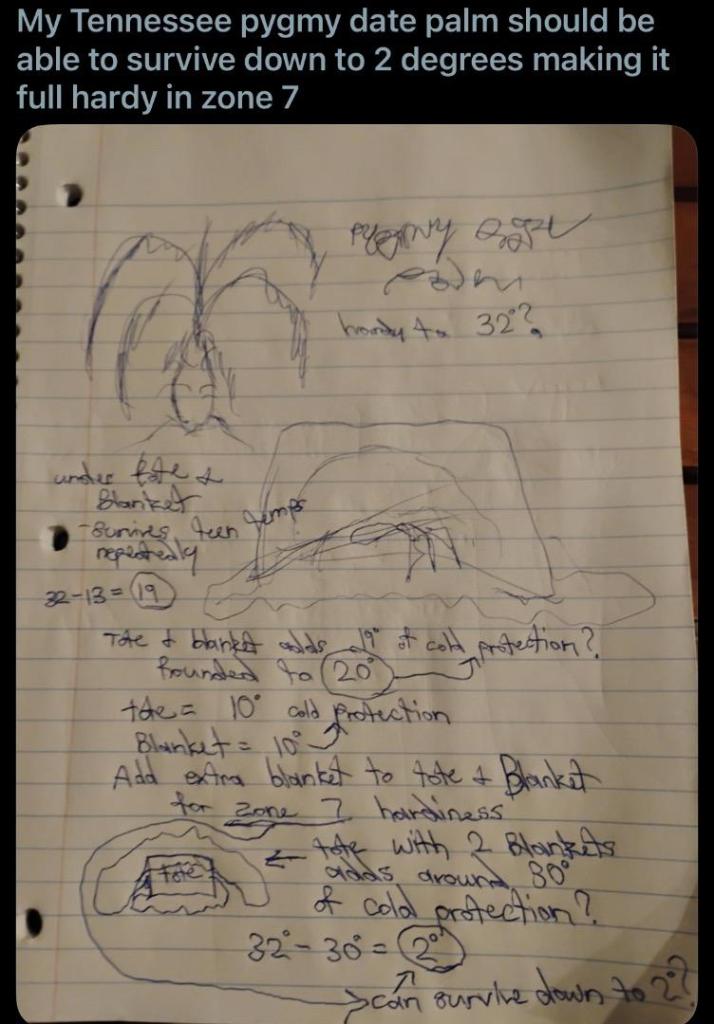 My Tennessee pygmy date palm should be
able to survive down to 2 degrees making it
full hardy in zone 7
pygmy
palm
hardy to 32°?
under tote &
Blanket
-survives teen temps
repeatedly
32-13= 19
Tote & blanket adds 19° of cold protection?
Rounded to 20°
tote= 10° cold protection
Blanket= 10°
Add extra blanket to tote & Blanket
for zone 7 hardiness
← tote with 2 Blankets
tote
adds around 30°
of cold protection?
32°-30°= 2°
can survive down to 2°?